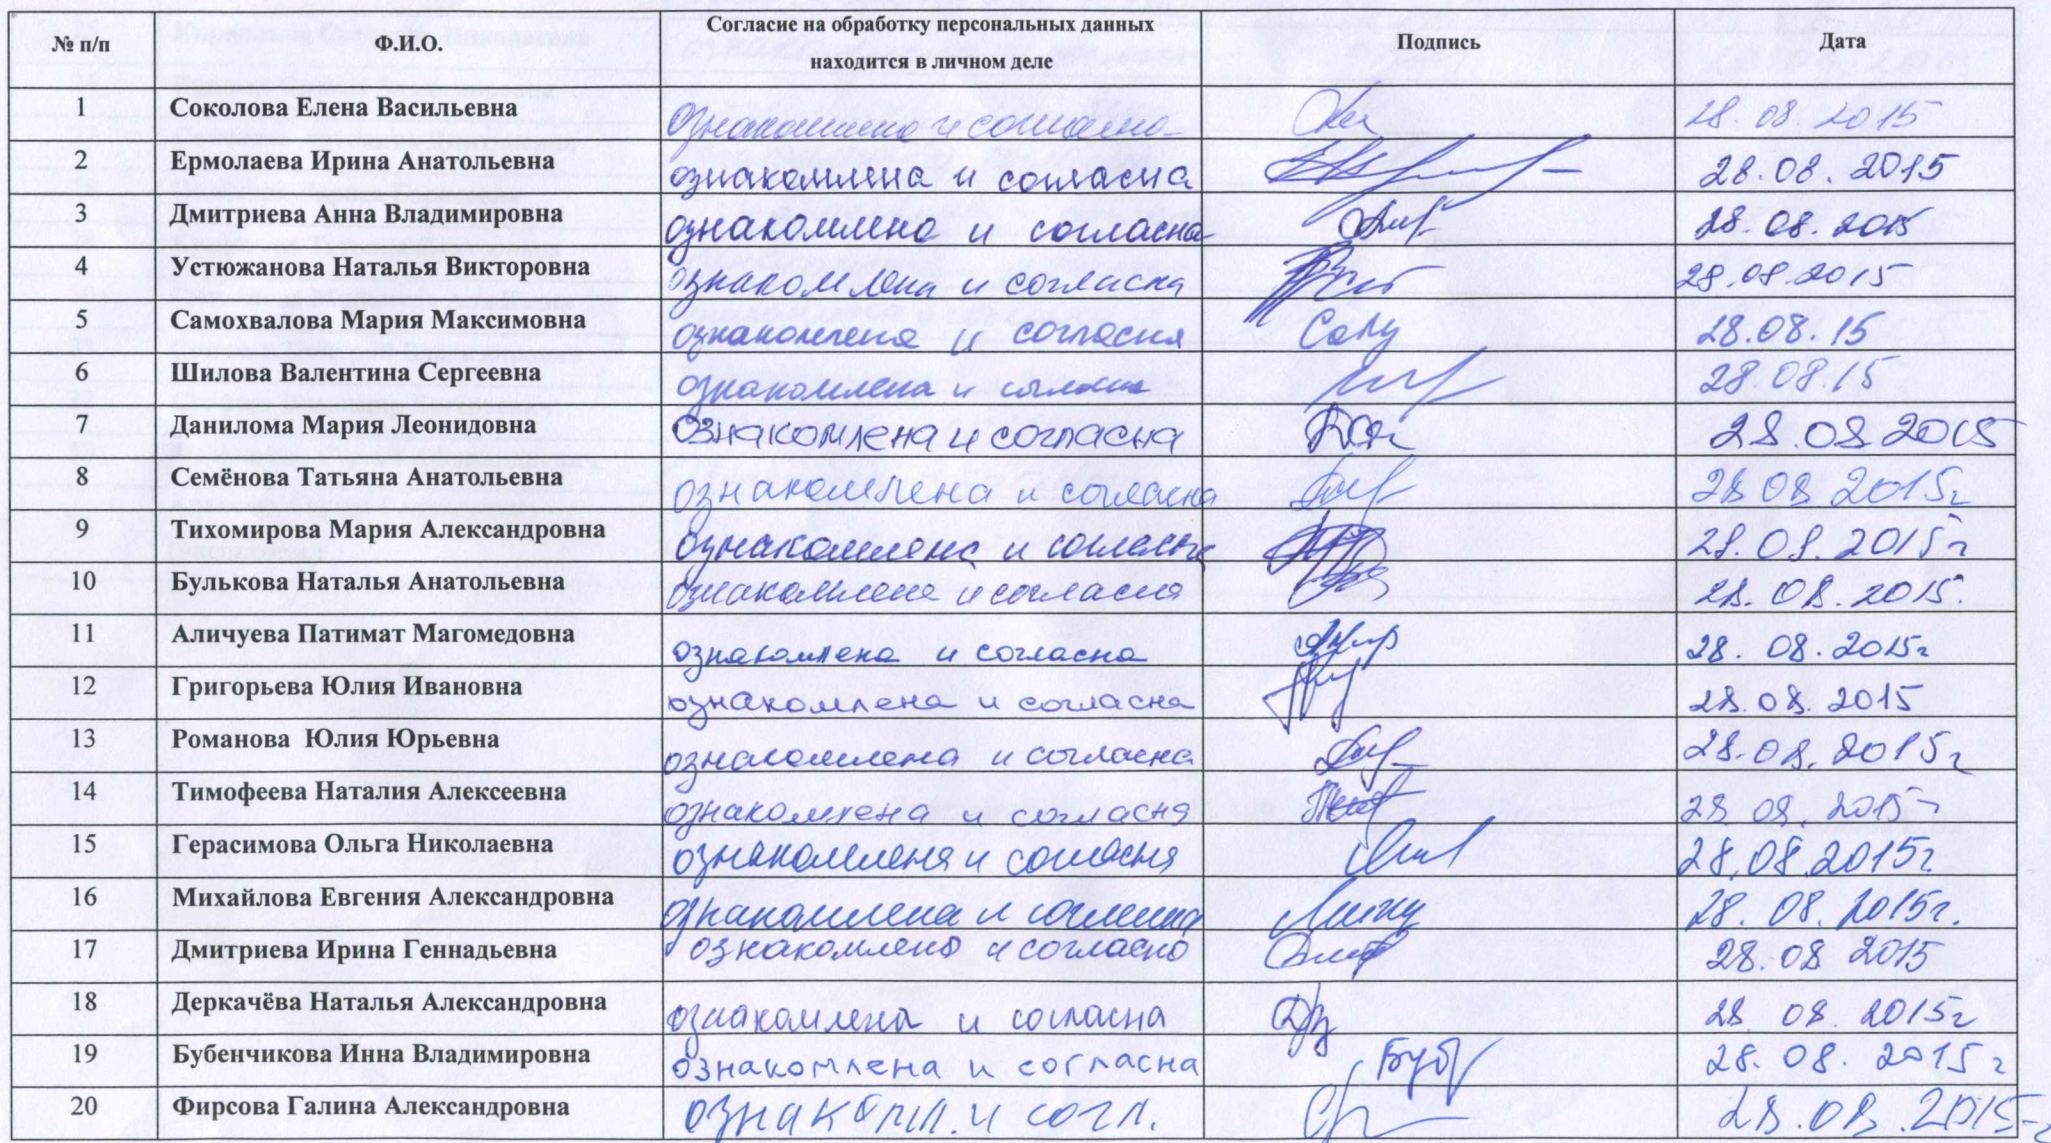 № п/п Ф.И.О. Согласие на обработку персональных данных находится в личном деле Подпись Дата
1 Соколова Елена Васильевна ознакомлена и согласна 28.08.2015
2 Ермолаева Ирина Анатольевна ознакомлена и согласна 28.08.2015
3 Дмитриева Анна Владимировна ознакомлена и согласна 28.08.2015
4 Устюжанова Наталья Викторовна ознакомлена и согласна 28.08.2015
5 Самохвалова Мария Максимовна ознакомлена и согласна 28.08.15
6 Шилова Валентина Сергеевна ознакомлена и согласна 28.08.15
7 Данилома Мария Леонидовна ознакомлена и согласна 28.08 2015
8 Семёнова Татьяна Анатольевна ознакомлена и согласна 28 08 2015г
9 Тихомирова Мария Александровна ознакомлена и согласна 28.08.2015г
10 Булькова Наталья Анатольевна ознакомлена и согласна 28.08.2015.
11 Аличуева Патимат Магомедовна ознакомлена и согласна 28.08.2015г
12 Григорьева Юлия Ивановна ознакомлена и согласна 28.08.2015
13 Романова Юлия Юрьевна ознакомлена и согласна 28.08.2015г
14 Тимофеева Наталия Алексеевна ознакомлена и согласна 28 08.2015г
15 Герасимова Ольга Николаевна ознакомлена и согласна 28.08.2015г
16 Михайлова Евгения Александровна ознакомлена и согласна 28.08.2015г.
17 Дмитриева Ирина Геннадьевна ознакомлена и согласна 28.08 2015
18 Деркачёва Наталья Александровна ознакомлена и согласна 28 08.2015г
19 Бубенчикова Инна Владимировна ознакомлена и согласна Буб 28.08.2015г
20 Фирсова Галина Александровна ознакомл. и согл. 28.08.2015г